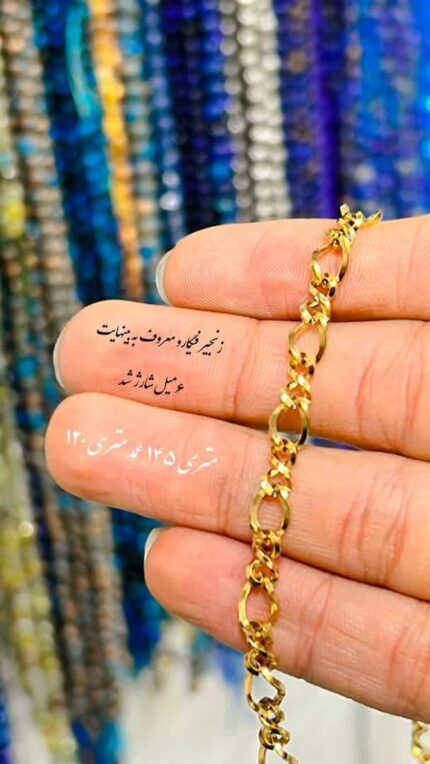 زنجیر فیگارو معروف به بینهایت
۶ میل شارژ شد
متری ۱۴۵ عمد متری ۱۲۰